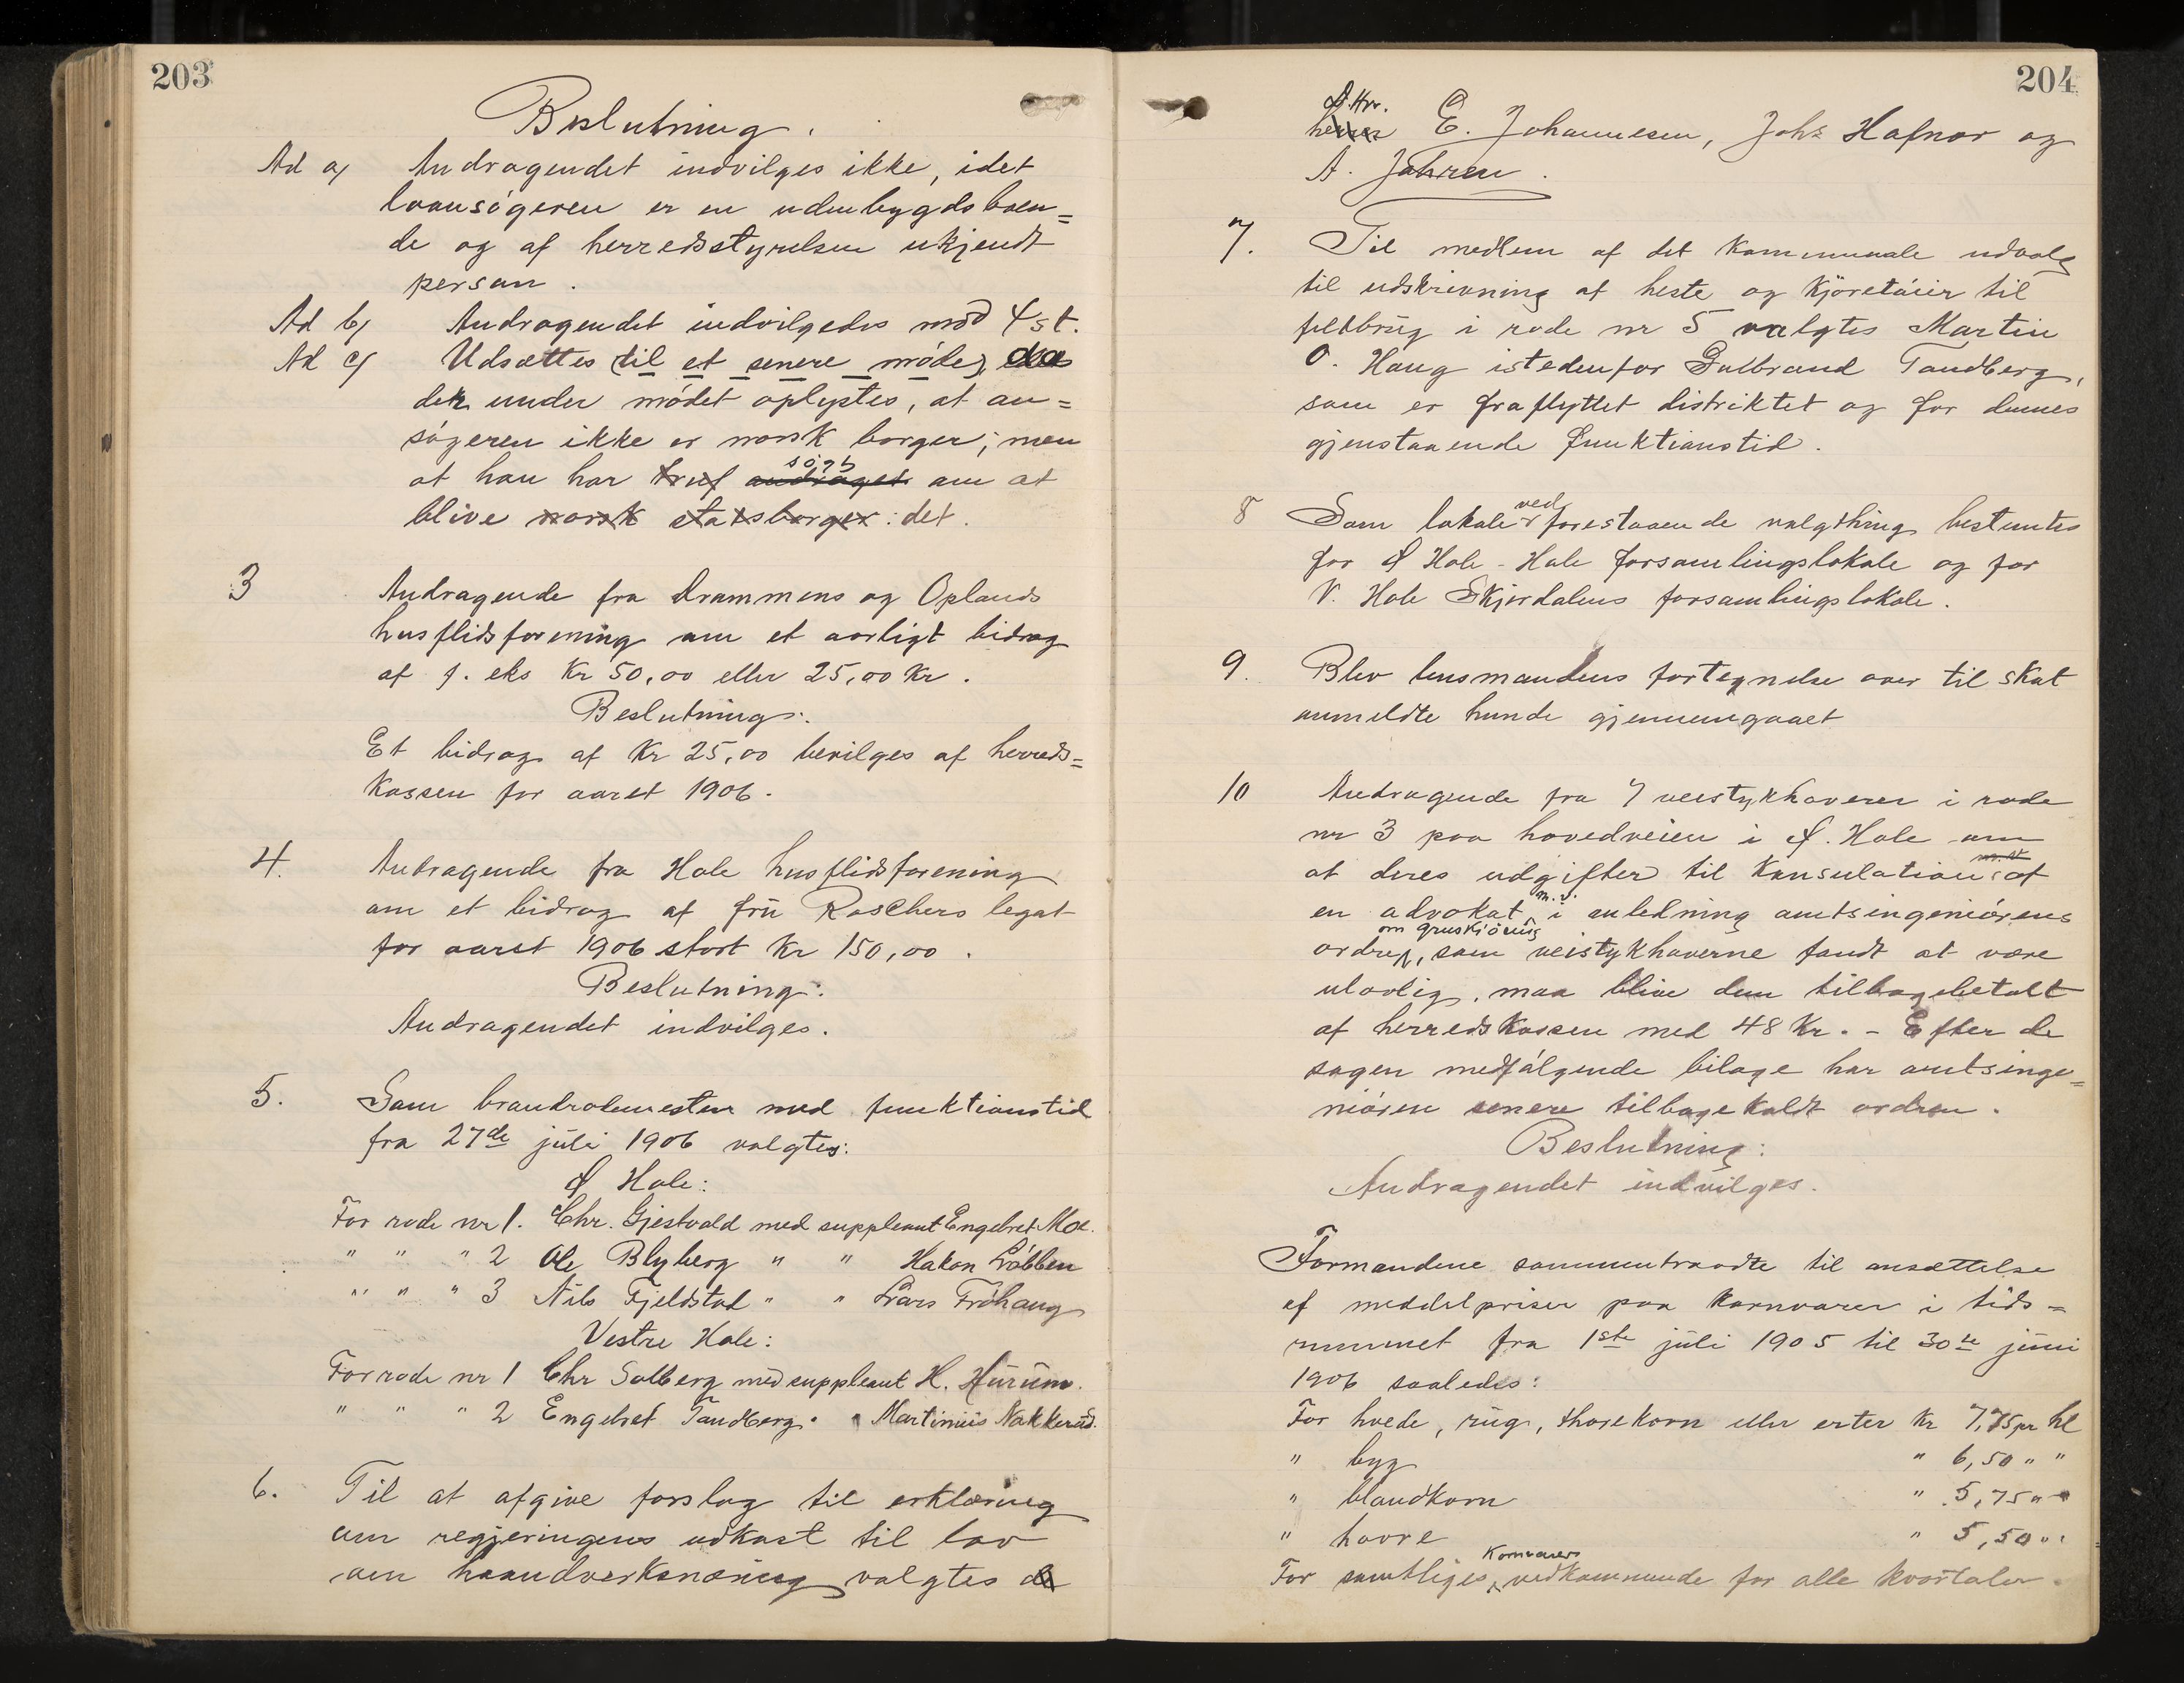 203
Beslutning.
Ad a) Andragendet indvilges ikke, idet
laansøgeren er en udenbygdsboen=
de og af herredsstyrelsen ukjendt
person.
Ad b) Andragendet indvilgedes mod 4 st.
Ad c) Udsættes (til et senere møde), da
der under mødet oplystes, at an=
søgeren ikke er norsk borger; men
at han har søgt om at
blive norsk statsborger: det.
3 Andragende fra Drammens og Oplands
husflidsforening om et aarligt bidrag
af f. eks Kr 50,00 eller 25,00 Kr.
Beslutning:
Et bidrag af Kr 25,00 bevilges af herreds=
kassen for aaret 1906.
4. Andragende fra Hole husflidsforening
om et bidrag af fru Raschers legat
for aaret 1906 stort Kr 150,00.
Beslutning:
Andragendet indvilges.
5. Som brandrodemestere med funktionstid
fra 27de juli 1906 valgtes:
Ø Hole:
For rode nr 1. Chr. Gjestvold med suppleant Engebret Moe.
" " " 2 Ole Blyberg " " Hakon Løbben
" " " 3 Nils Fjeldstad " " Lars Frøhaug
Vestre Hole:
For rode nr 1 Chr Solberg med suppleant H. Hurum.
" " " 2 Engebret Tandberg " " Martinius Nakkerud.
6. Til at afgive forslag til erklæring
om regjeringens udkast til lov
om haandverksnæring valgtes
204
d'Hrr.
herrer E. Johannesen, Johs Hafnor og
A. Jahren.
7. Til medlem af det kommunale udvalg
til udskrivning af heste og kjøretøier til
feltbrug i rode nr 5 valgtes Martin
O. Haug istedenfor Gulbrand Tandberg,
som er fraflyttet distriktet og for dennes
gjenstaaende funktionstid.
ved
8 Som lokale forestaaende valgthing bestemtes
for Ø Hole - Hole forsamlingslokale og for
V. Hole Skjørdalens forsamlingslokale.
9. Blev lensmandens fortegnelse over til skat
anmeldte hunde gjennemgaaet
10 Andragende fra 7 veistykhavere i rode
nr 3 paa hovedveien i Ø. Hole om
at deres udgifter til konsulation af
en advokat m. v. i anledning amtsingeniørens
om gruskjøring
ordre, som veistykhaverne fandt at være
ulovlig, maa blive dem tilbagebetalt
af herredskassen med 48 Kr. - Efter de
sagen medfølgende bilage har amtsinge=
niøren senere tilbagekaldt ordren.
Beslutning:
Andragendet indvilges.
Formændene sammentraadte til ansættelse
af middelpriser paa kornvarer i tids=
rummet fra 1ste juli 1905 til 30te juni
1906 saaledes:
For hvede, rug, thorekorn eller erter Kr 7,75 pr hl
" byg " 6,50 " "
" blandkorn " 5,75 " "
" havre " 5,50 " "
Kornvarer
For samtliges vedkommende for alle kvartaler.